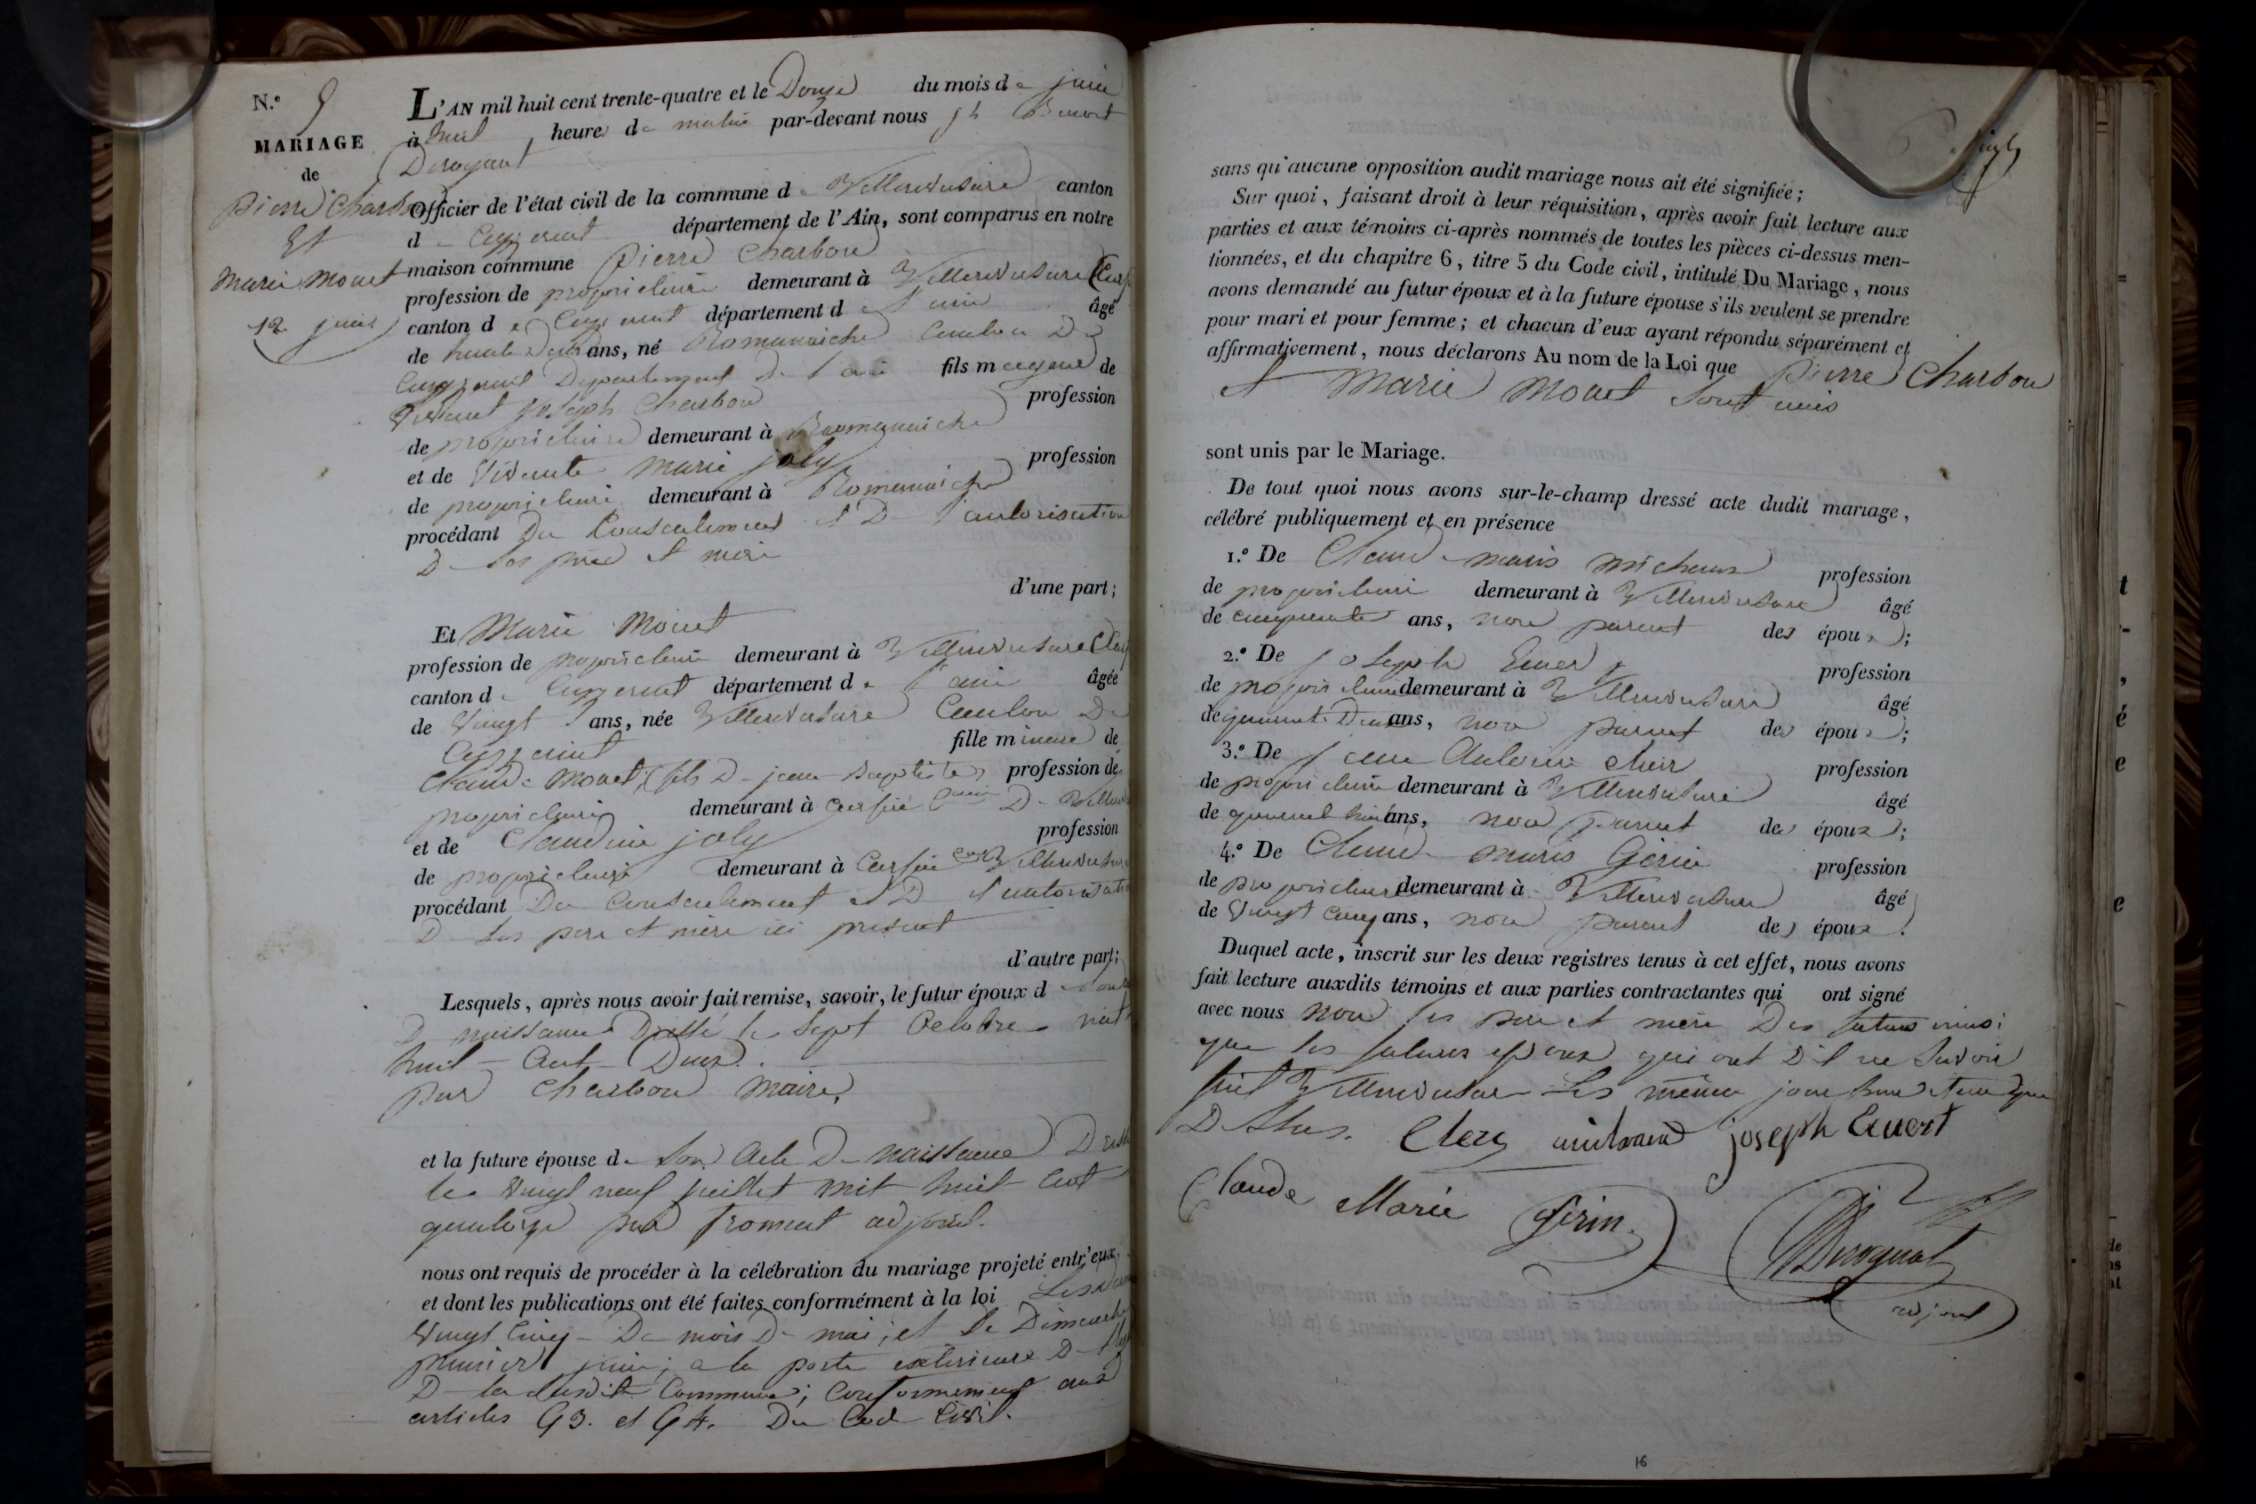 N.° 9
MARIAGE
de
Pierre Charbon
Et
Marie Monet
12 juin
L'AN mil huit cent trente-quatre et le Douze du mois de juin
à huit heures de matin par-devant nous jh Benoit
Derognat
Officier de l'état civil de la commune de Villereversure canton
de Ceyzeriat département de l'Ain, sont comparus en notre
maison commune Pierre Charbon
profession de proprietaire demeurant à Villereversure
canton de Ceyzeriat département de l'ain âgé
de trente Deux ans, né Romanaiche Canton De
Ceyzeriat Departement De l'ain fils majeur de
Vivant joseph Charbon profession
de proprietaire demeurant à Romanaiche
et de Vivante Marie joly profession
de proprietaire demeurant à Romanaiche
procédant Du Consentement et De l'autorisation
De ses pere et mere
d'une part;
Et Marie Monet
profession de proprietaire demeurant à Villereversure
canton de Ceyzeriat département de l'ain âgée
de Vingt ans, née Villereversure Canton De
Ceyzeriat fille mineure de
Claude Monet, fils De jean Baptiste profession de
proprietaire demeurant à De
et de Claudine joly profession
de proprietaire demeurant à Villereversure
procédant Du Consentement et De l'autorisation
De ses pere et mère ici present
d'autre part;
Lesquels, après nous avoir fait remise, savoir, le futur époux d
De naissance Dressé le sept Octobre mil
huit Cent Deux.
par Charbon Maire,
et la future épouse de son Acte De naissance Dressé
le Vingt neuf juillet mil huit Cent
quatorze par froment adjoint.
nous ont requis de procéder à la célébration du mariage projeté entr'eux,
et dont les publications ont été faites conformément à la loi
Vingt Cinq De mois De mai, et le Dimanche
premier juin; a la porte exterieure De
De la susdite Commune; Conformement aux
articles 93. et 94. Du Code Civil.
sans qu'aucune opposition audit mariage nous ait été signifiée;
Sur quoi, faisant droit à leur réquisition, après avoir fait lecture aux
parties et aux témoins ci-après nommés de toutes les pièces ci-dessus men-
tionnées, et du chapitre 6, titre 5 du Code civil, intitulé Du Mariage, nous
avons demandé au futur époux et à la future épouse s'ils veulent se prendre
pour mari et pour femme; et chacun d'eux ayant répondu séparément et
affirmativement, nous déclarons Au nom de la Loi que Pierre Charbon
et Marie Monet sont unis
sont unis par le Mariage.
De tout quoi nous avons sur-le-champ dressé acte dudit mariage,
célébré publiquement et en présence
1.° De Claude maris Michaux profession
de proprietaire demeurant à Villereversure âgé
de cinquante ans, non parent des époux;
2.° De joseph Euert profession
de proprietaire demeurant à Villereversure âgé
de quarante Deux ans, non parent des époux;
3.° De jean Antoine Clerc profession
de proprietaire demeurant à Villereversure âgé
de quarante huit ans, non parent des époux;
4.° De Claude maris Gérin profession
de proprietaire demeurant à Villereversure âgé
de Vingt Cinq ans, non parent des époux.
Duquel acte, inscrit sur les deux registres tenus à cet effet, nous avons
fait lecture auxdits témoins et aux parties contractantes qui ont signé
avec nous non les pere et mere Des futurs ainsi
que les futures epoux qui ont Dit ne Savoir
fait Villereversure Les mème jour heure et an que
Dessus. Clerc joseph Euert
Claude Marie Gérin Derognat
adjoint
16